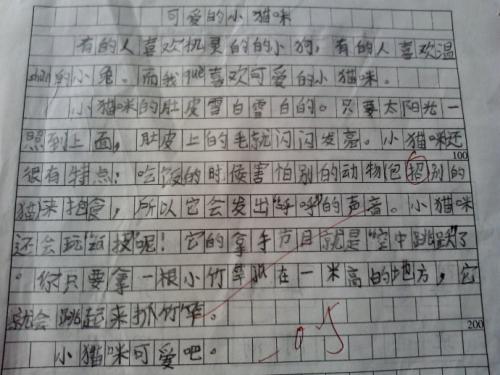 可爱的小猫咪
有的人喜欢机灵的的小狗，有的人喜欢温
shùn的小兔。而我què喜欢可爱的小猫咪。
小猫咪的肚皮雪白雪白的。只要太阳光一
照到上面，肚皮上的毛就闪闪发亮。小猫咪还
100
很有特点：吃饭的时候害怕别的动物包括别的
猫来抢食，所以它会发出"呼呼"的声音。小猫咪
还会玩"技"呢！它的拿手节目就是"空中跳跃"了
。你只要拿一根小竹竿放在一米高的地方，它
就会跳起来扑竹竿。
200
小猫咪可爱吧。